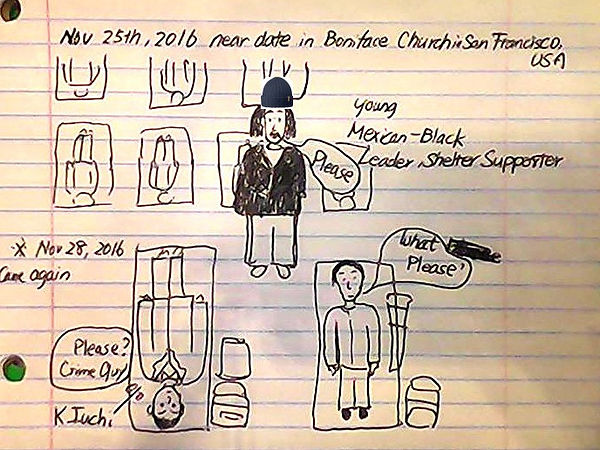 Nov 25th, 2016 near date in Boniface Church in San Francisco,
USA
Young
Mexican-Black
Leader, Shelter Supporter
Please
※ Nov 28, 2016
Came again
What
Please?
Please?
Crime Guy
K Iuchi